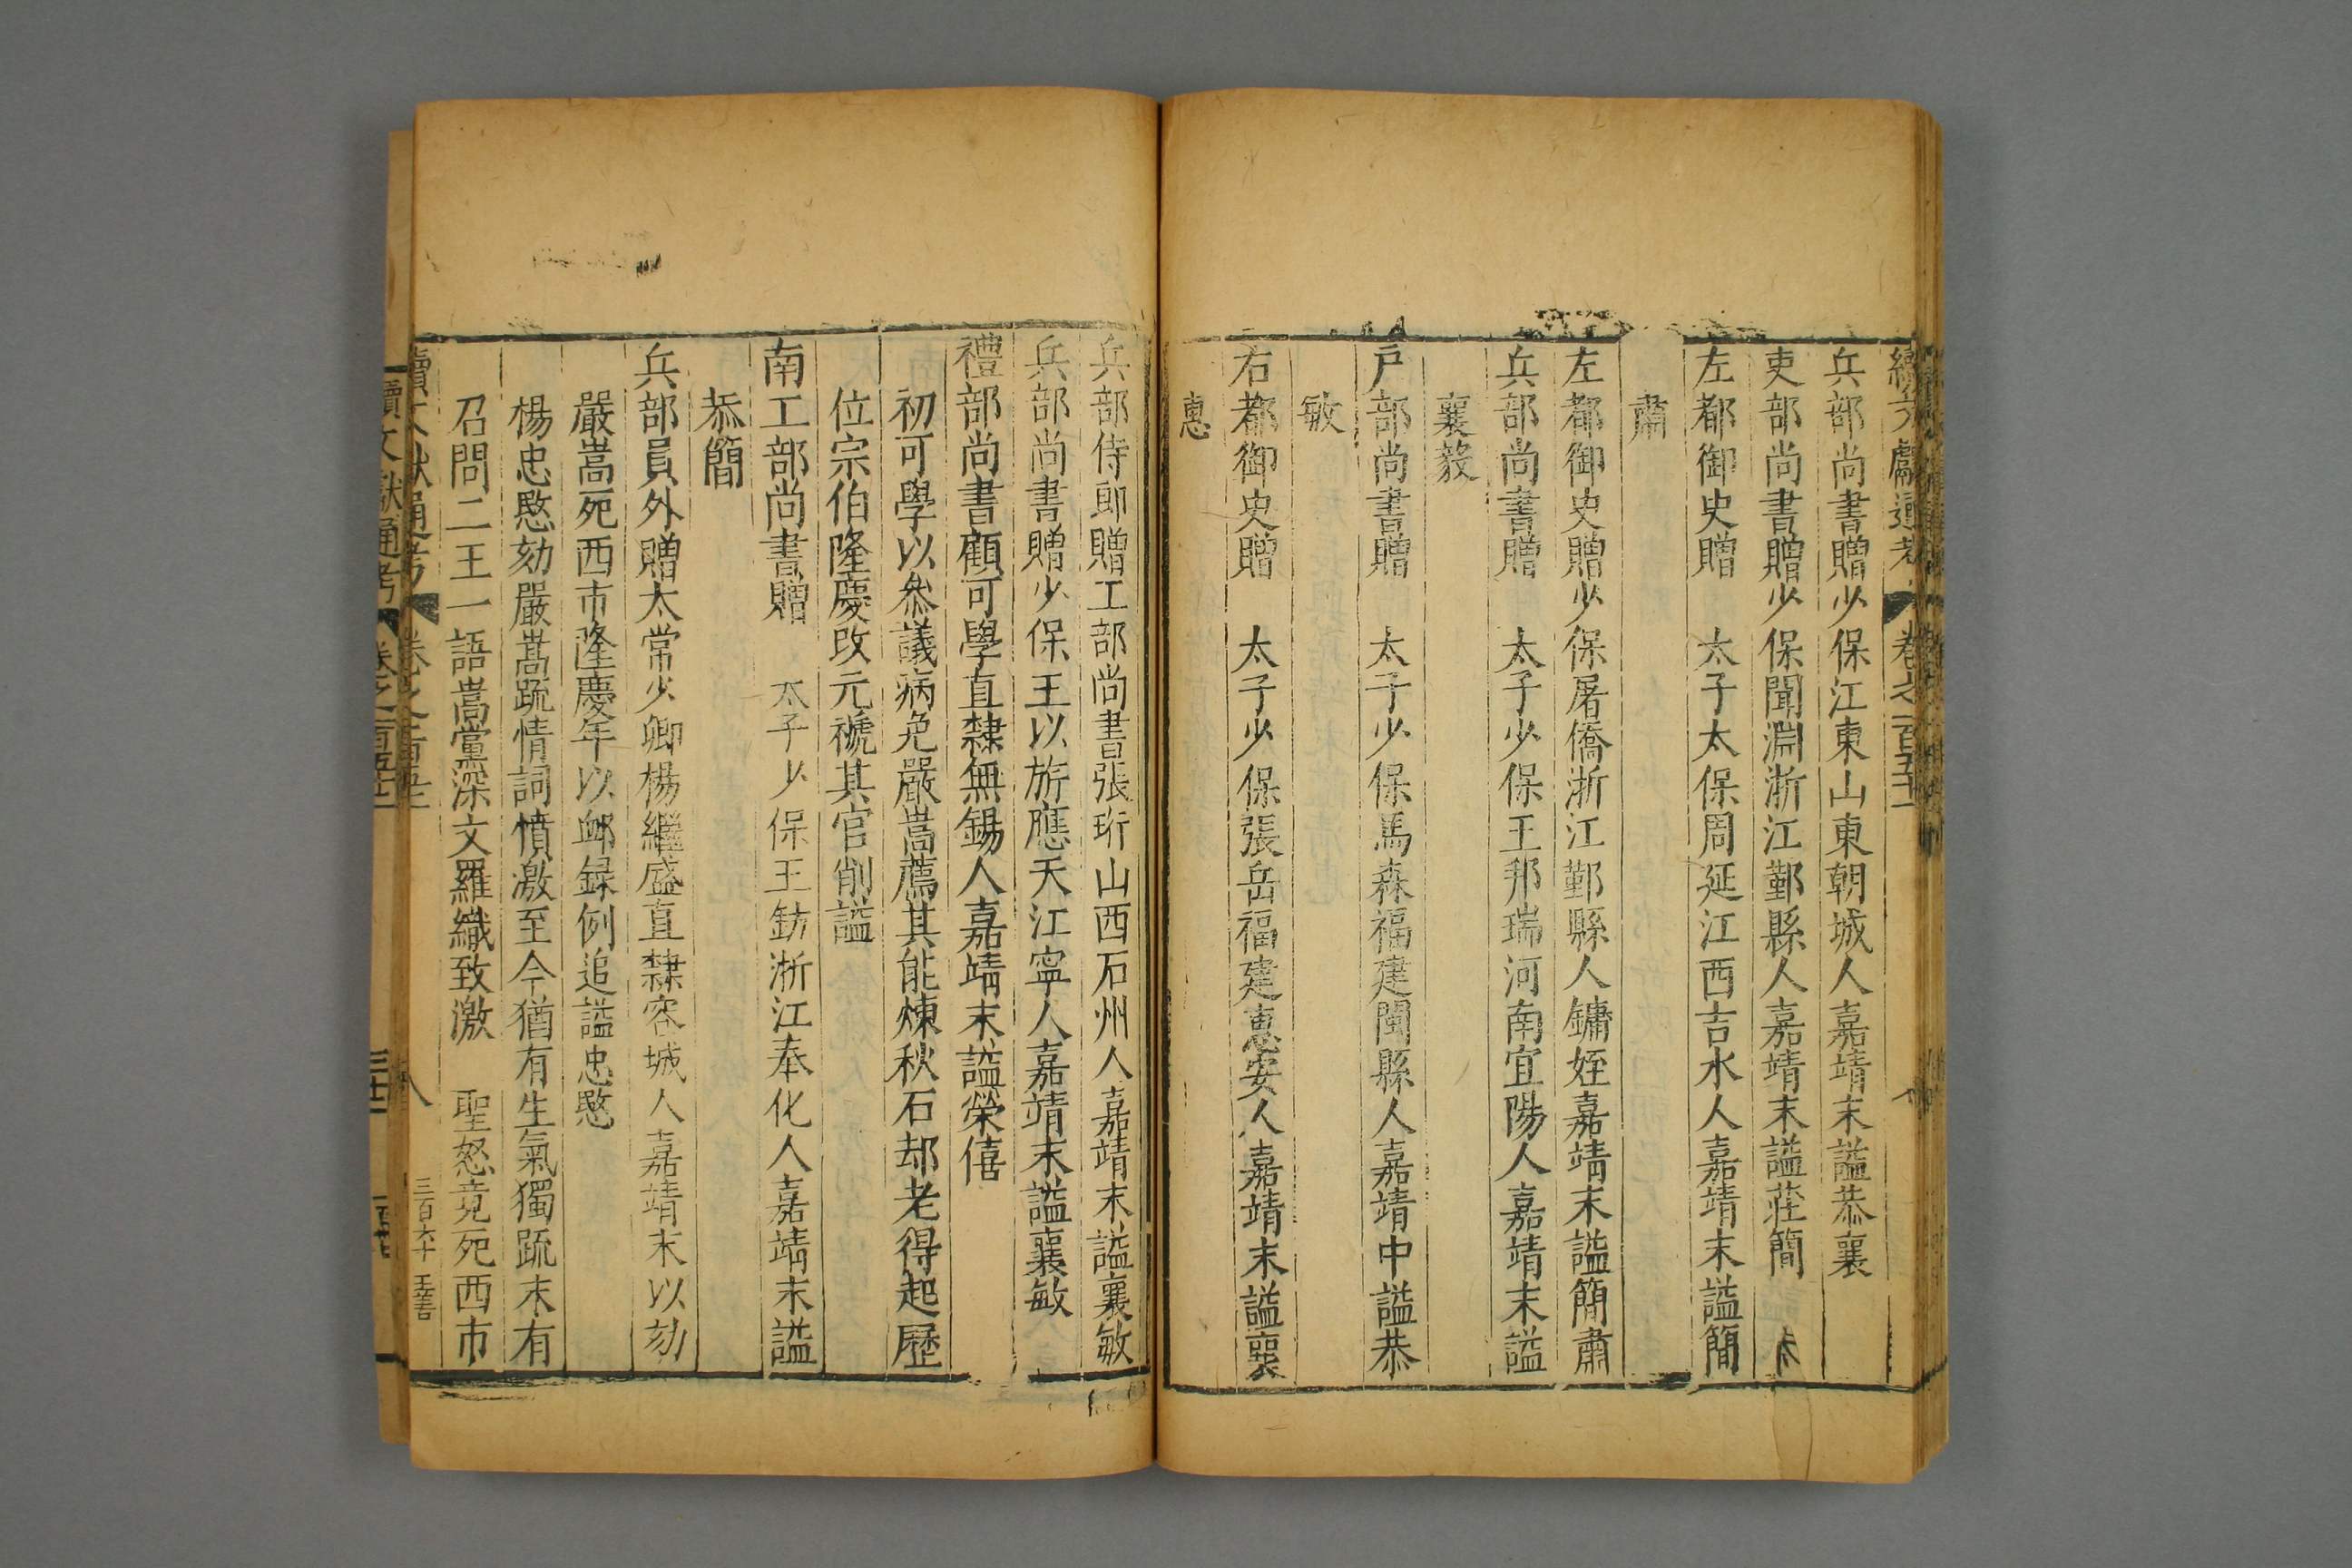 續文獻通考 卷之一百五十二 八
兵部尚書贈少保江東山東朝城人嘉靖末謚恭襄
吏部尚書贈少保聞淵浙江鄞縣人嘉靖末謚莊簡
左都御史贈 太子太保周延江西吉水人嘉靖末謚簡
肅
左都御史贈少保屠僑浙江鄞縣人鏞姪嘉靖末謚簡肅
兵部尚書贈 太子少保王邦瑞河南宜陽人嘉靖末謚
襄毅
戶部尚書贈 太子少保馬森福建閩縣人嘉靖中謚恭
敏
右都御史贈 太子少保張岳福建惠安人嘉靖末謚襄
惠
兵部侍郎贈工部尚書張珩山西石州人嘉靖末謚襄敏
兵部尚書贈少保王以旂應天江寧人嘉靖末謚襄敏
禮部尚書顧可學直隸無錫人嘉靖末謚榮僖
初可學以叅議病免嚴嵩薦其能煉秋石却老得起歷
位宗伯隆慶改元褫其官削謚
南工部尚書贈 太子少保王鈁浙江奉化人嘉靖末謚
恭簡
兵部員外贈太常少卿楊繼盛直隸容城人嘉靖末以劾
嚴嵩死西市隆慶年以䘏録例追謚忠愍
楊忠愍劾嚴嵩疏情詞憤激至今猶有生氣獨疏末有
召問二王一語嵩黨深文羅織致激 聖怒竟死西市
續文獻通考 卷之一百五十二 八 三百六十 王善
續文獻通考 卷之一百五十二